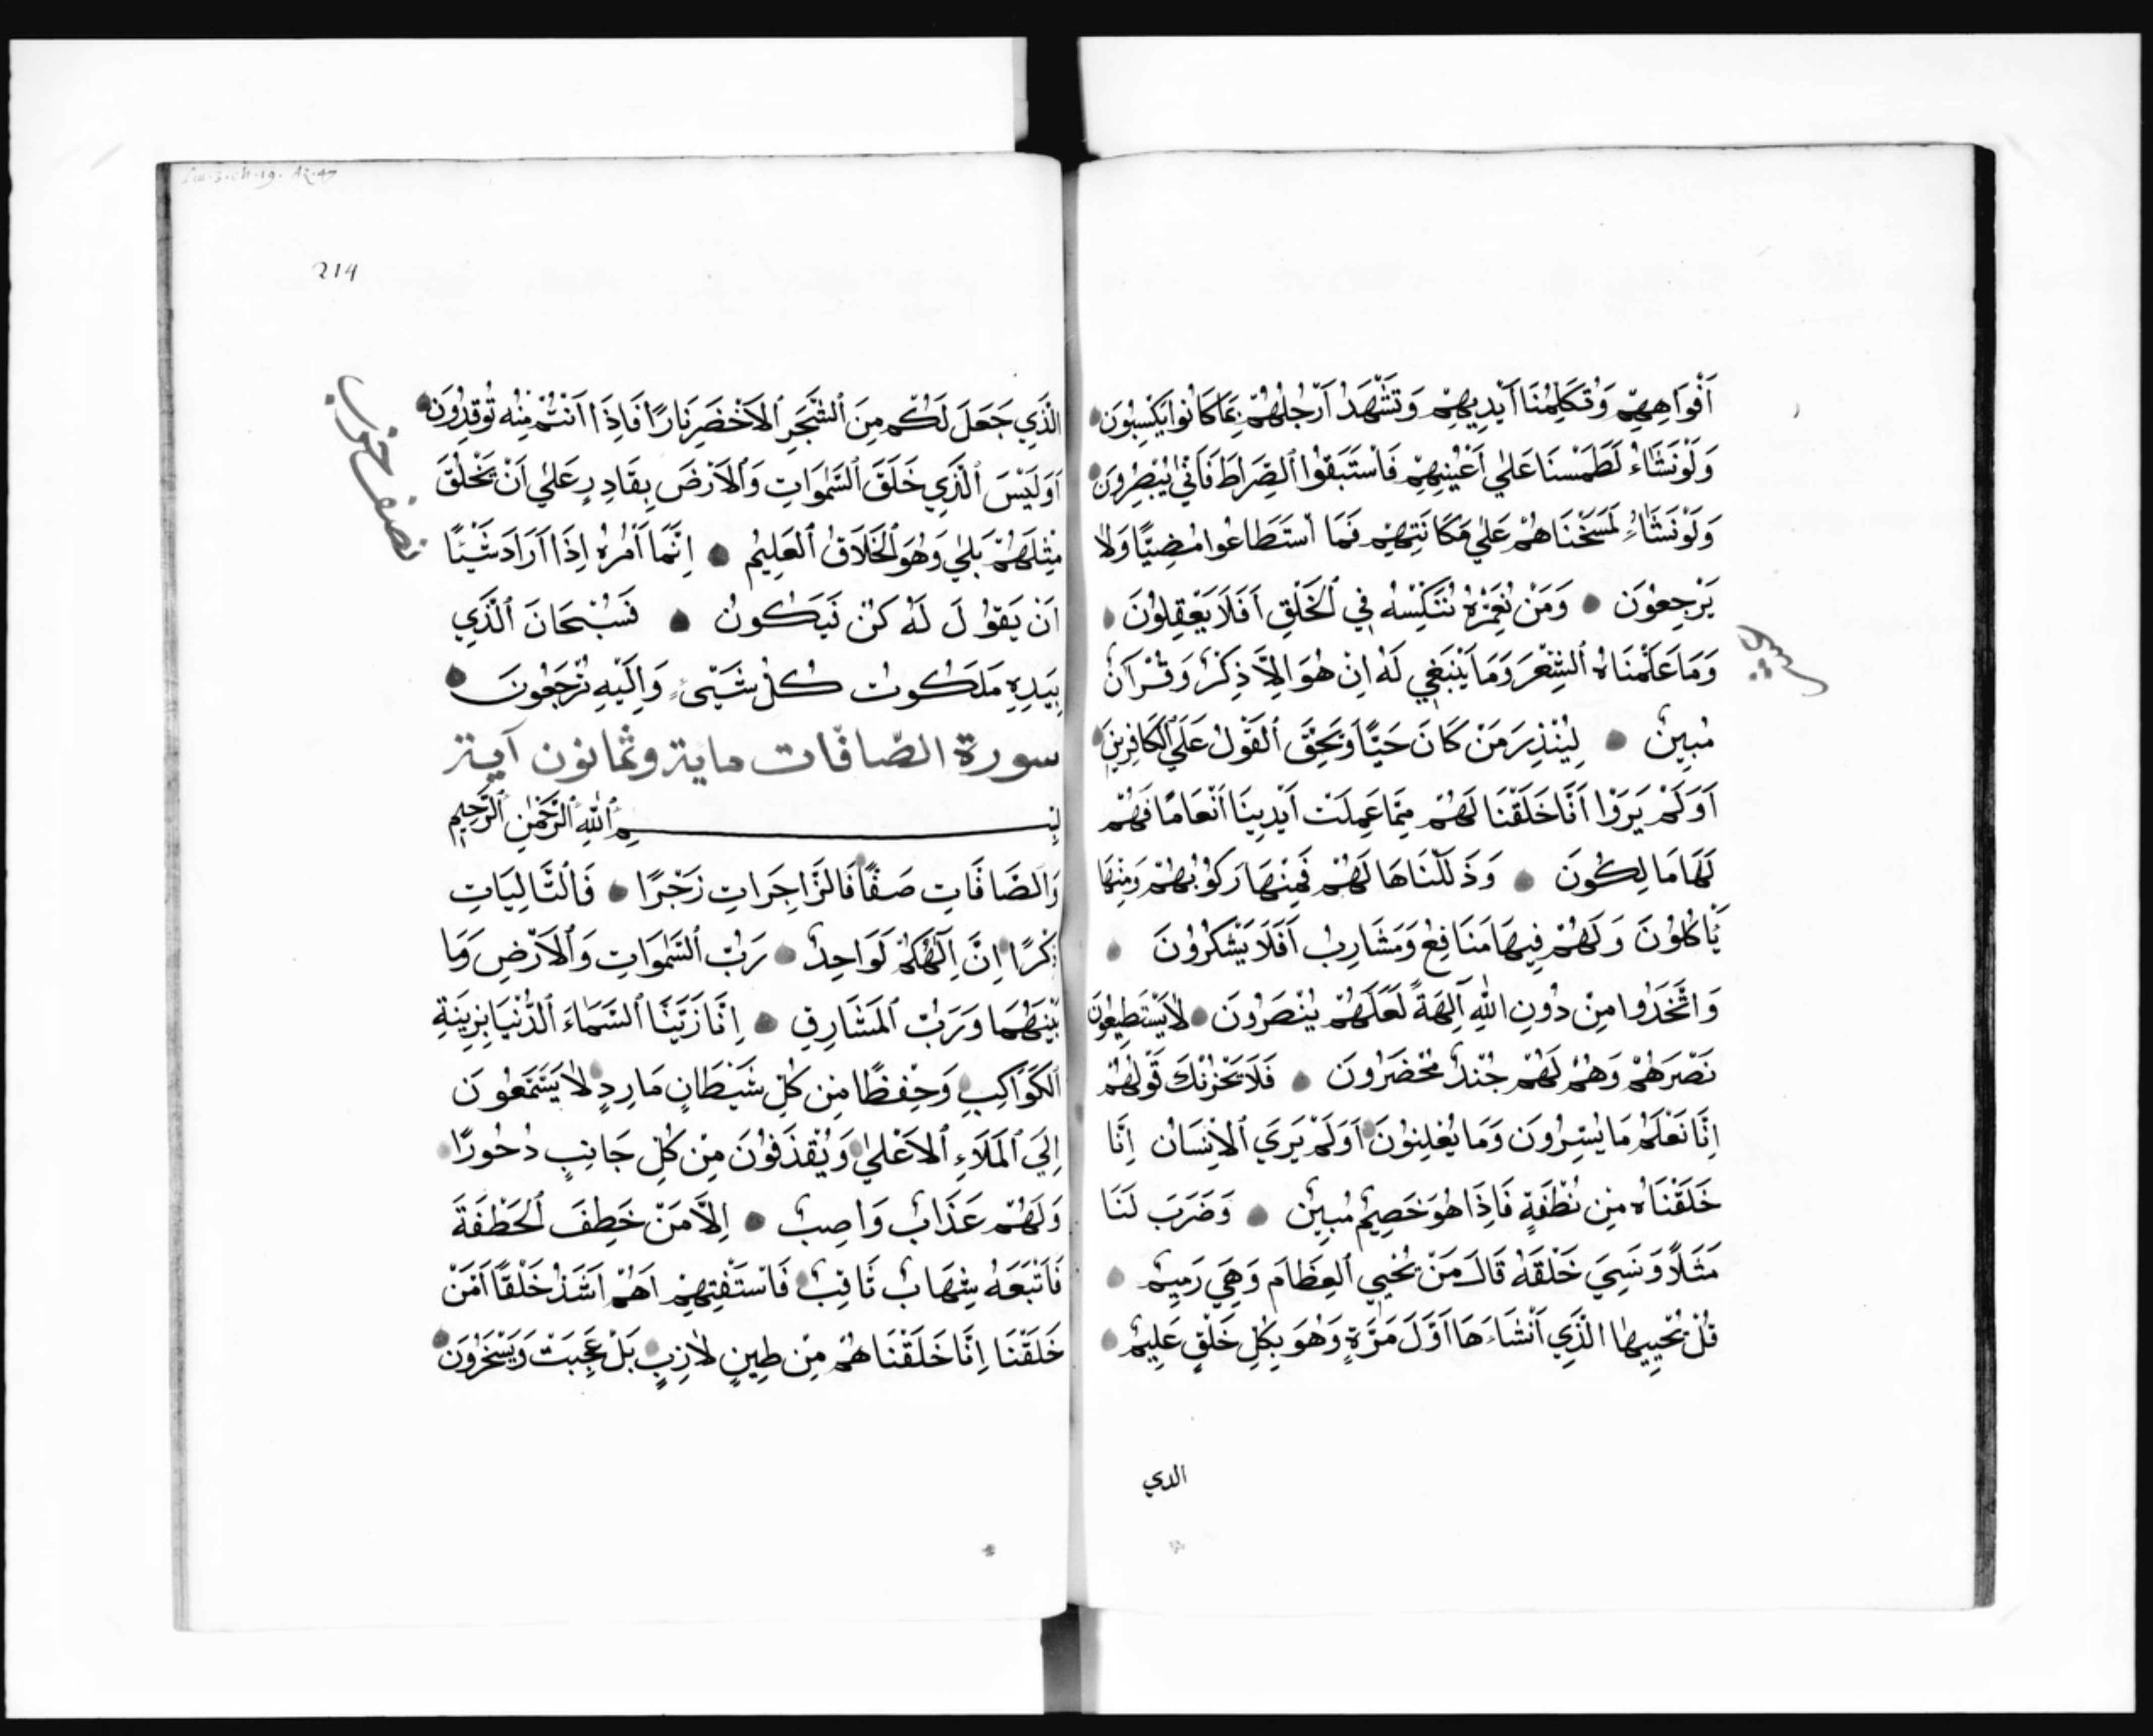 أَفْوَاهِهِمْ وَتُكَلِّمُنَا أَيْدِيهِمْ وَتَشْهَدُ أَرْجُلُهُمْ بِمَا كَانُوا يَكْسِبُونَ
وَلَوْ نَشَاءُ لَطَمَسْنَا عَلَي أَعْيُنِهِمْ فَاسْتَبَقُوا ٱلصِّرَاطَ فَأَنَّي يُبْصِرُونَ
وَلَوْ نَشَاءُ لَمَسَخْنَاهُمْ عَلَي مَكَانَتِهِمْ فَمَا اسْتَطَاعُوا مُضِيًّا وَلَا
يَرْجِعُونَ وَمَنْ نُعَمِّرْهُ نُنَكِّسْهُ فِي ٱلْخَلْقِ أَفَلَا يَعْقِلُونَ
وَمَا عَلَّمْنَاهُ ٱلشِّعْرَ وَمَا يَنْبَغِي لَهُ اِنْ هُوَ اِلَّا ذِكْرٌ وَقُرْآنٌ
مُبِينٌ لِيُنْذِرَ مَنْ كَانَ حَيًّا وَيَحِقَّ ٱلْقَوْلُ عَلَي ٱلْكَافِرِينَ
اَوَلَمْ يَرَوْا اَنَّا خَلَقْنَا لَهُمْ مِمَّا عَمِلَتْ اَيْدِينَا اَنْعَامًا فَهُمْ
لَهَا مَالِكُونَ وَذَلَّلْنَاهَا لَهُمْ فَمِنْهَا رَكُوبُهُمْ وَمِنْهَا
يَأْكُلُونَ وَلَهُمْ فِيهَا مَنَافِعُ وَمَشَارِبُ اَفَلَا يَشْكُرُونَ
وَاتَّخَذُوا مِنْ دُونِ اللّٰهِ آلِهَةً لَعَلَّهُمْ يُنْصَرُونَ لَا يَسْتَطِيعُونَ
نَصْرَهُمْ وَهُمْ لَهُمْ جُنْدٌ مُحْضَرُونَ فَلَا يَحْزُنْكَ قَوْلُهُمْ
اِنَّا نَعْلَمُ مَا يُسِرُّونَ وَمَا يُعْلِنُونَ اَوَلَمْ يَرَي ٱلْاِنْسَانُ اِنَّا
خَلَقْنَاهُ مِنْ نُطْفَةٍ فَاِذَا هُوَ خَصِيمٌ مُبِينٌ وَضَرَبَ لَنَا
مَثَلًا وَنَسِيَ خَلْقَهُ قَالَ مَنْ يُحْيِي ٱلْعِظَامَ وَهِيَ رَمِيمٌ
قُلْ يُحْيِيهَا الَّذِي اَنْشَاءَهَا اَوَّلَ مَرَّةٍ وَهُوَ بِكُلِّ خَلْقٍ عَلِيمٌ
الدي
214
نصف حزب
الَّذِي جَعَلَ لَكُمْ مِنَ ٱلشَّجَرِ ٱلْاَخْضَرِ نَارًا فَاِذَا اَنْتُمْ مِنْهُ تُوقِدُونَ
اَوَلَيْسَ ٱلَّذِي خَلَقَ ٱلسَّمٰوَاتِ وَٱلْاَرْضَ بِقَادِرٍ عَلٰي اَنْ يَخْلُقَ
مِثْلَهُمْ بَلٰي وَهُوَ ٱلْخَلَّاقُ ٱلْعَلِيمُ اِنَّمَا اَمْرُهُ اِذَا اَرَادَ شَيْئًا
اَنْ يَقُولَ لَهُ كُنْ فَيَكُونُ فَسُبْحَانَ ٱلَّذِي
بِيَدِهِ مَلَكُوتُ كُلِّ شَيْءٍ وَاِلَيْهِ تُرْجَعُونَ
سورة الصّافّات ماية وثمانون آية
بِسْمِ ٱللّٰهِ ٱلرَّحْمٰنِ ٱلرَّحِيمِ
وَالصَّافَّاتِ صَفًّا فَالزَّاجِرَاتِ زَجْرًا فَٱلتَّالِيَاتِ
ذِكْرًا اِنَّ اِلٰهَكُمْ لَوَاحِدٌ رَبُّ ٱلسَّمٰوَاتِ وَٱلْاَرْضِ وَمَا
بَيْنَهُمَا وَرَبُّ ٱلْمَشَارِقِ اِنَّا زَيَّنَّا ٱلسَّمَاءَ ٱلدُّنْيَا بِزِينَةِ
ٱلْكَوَاكِبِ وَحِفْظًا مِنْ كُلِّ شَيْطَانٍ مَارِدٍ لَا يَسَّمَّعُونَ
اِلَي ٱلْمَلَاءِ ٱلْاَعْلٰي وَيُقْذَفُونَ مِنْ كُلِّ جَانِبٍ دُحُورًا
وَلَهُمْ عَذَابٌ وَاصِبٌ اِلَّا مَنْ خَطِفَ ٱلْخَطْفَةَ
فَاَتْبَعَهُ شِهَابٌ ثَاقِبٌ فَاسْتَفْتِهِمْ اَهُمْ اَشَدُّ خَلْقًا اَمْ مَنْ
خَلَقْنَا اِنَّا خَلَقْنَاهُمْ مِنْ طِينٍ لَازِبٍ بَلْ عَجِبْتَ وَيَسْخَرُونَ